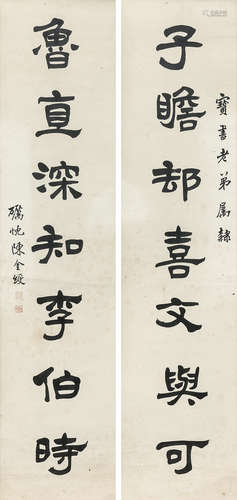 寶書老弟属隸
子瞻却喜文與可
魯直深知李伯時
礪忱陳金綬